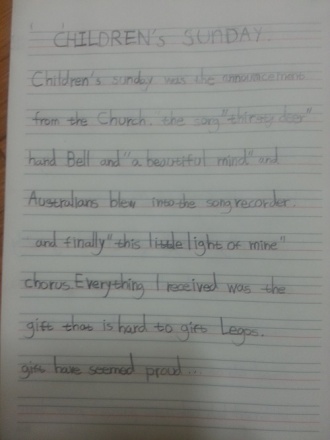 CHILDREN'S SUNDAY.
Children's sunday was the announcement
from the Church. the song "thirsty deer"
hand Bell and "a beautiful mind" and
Australians blew into the song recorder.
and finally "this little light of mine"
chorus. Everything I received was the
gift that is hard to gift Legos.
gift have seemed proud...